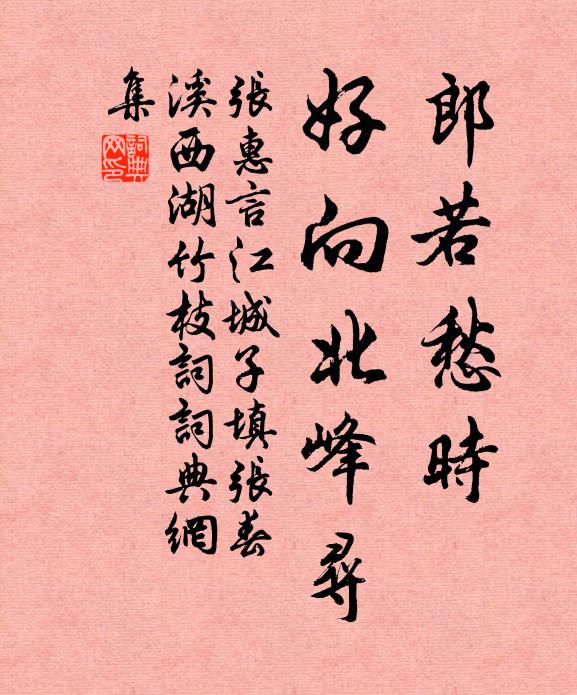 郎若愁時
好向北峰尋
張惠言江城子填張春
溪西湖竹枝詞詞典網
集
詞典網印